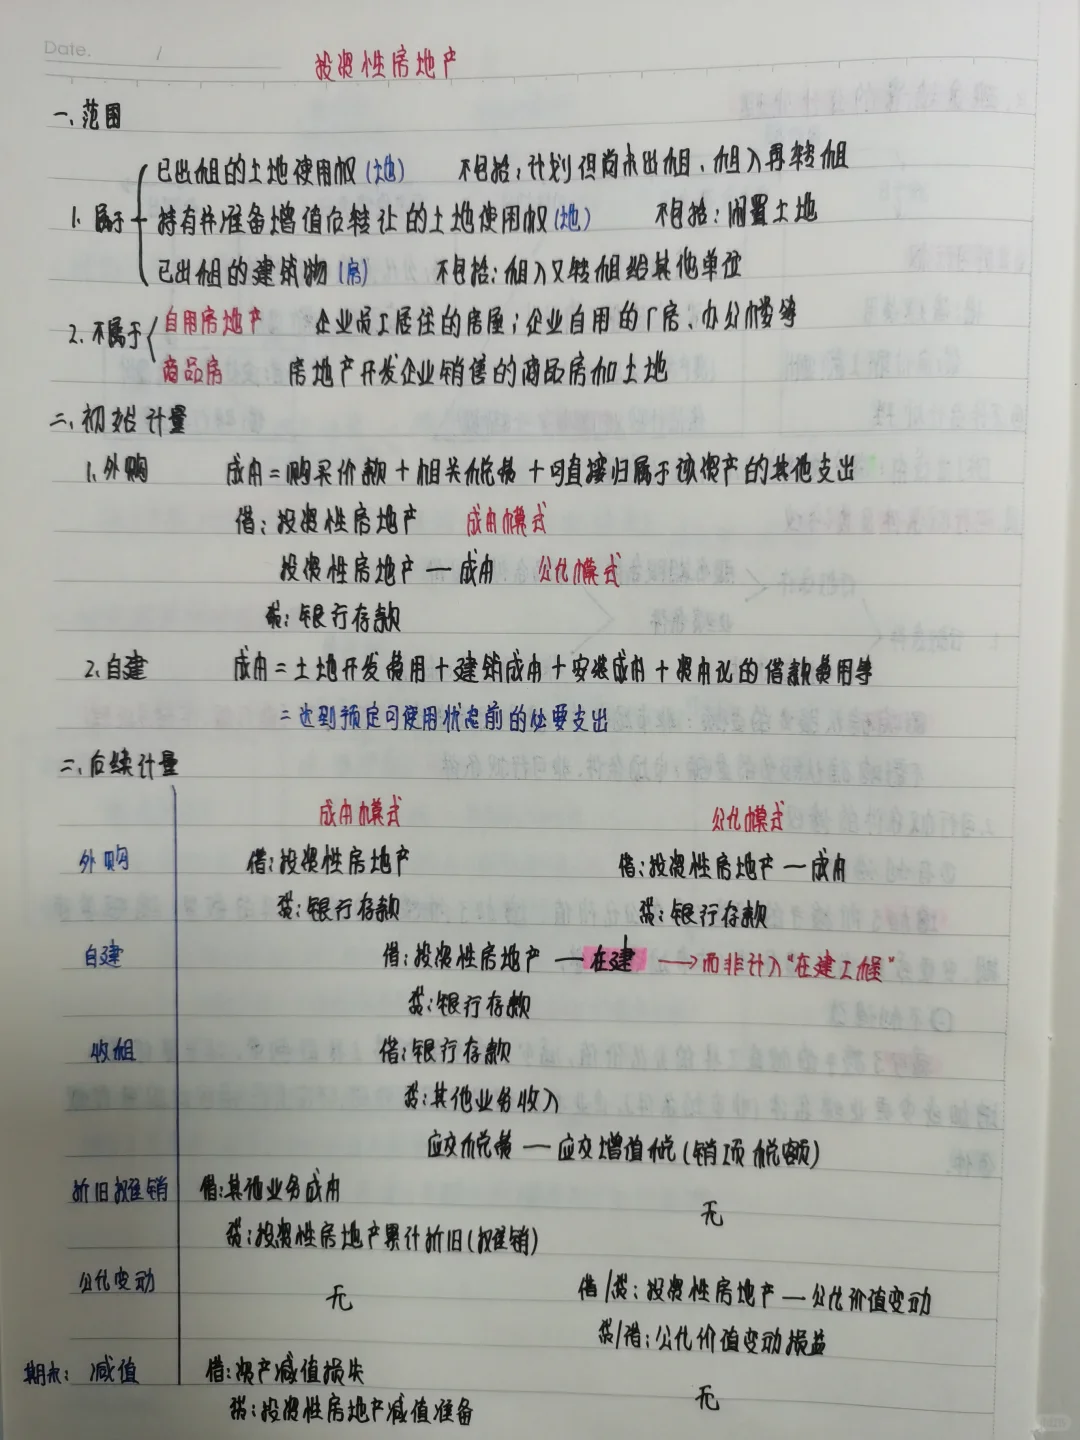 Date. /
投资性房地产
一、范围
1. 属于
已出租的土地使用权(地) 不包括:计划但尚未出租、租入再转租
持有并准备增值后转让的土地使用权(地) 不包括:闲置土地
已出租的建筑物(房) 不包括:租入又转租给其他单位
2. 不属于
自用房地产 企业员工居住的房屋;企业自用的厂房、办公楼等
商品房 房地产开发企业销售的商品房和土地
二、初始计量
1.外购 成本=购买价款+相关税费+可直接归属于该资产的其他支出
借:投资性房地产 成本模式
投资性房地产—成本 公允模式
贷:银行存款
2.自建 成本=土地开发费用+建筑成本+安装成本+资本化的借款费用等
=达到预定可使用状态前的必要支出
二、后续计量
成本模式 公允模式
外购 借:投资性房地产 借:投资性房地产—成本
贷:银行存款 贷:银行存款
自建 借:投资性房地产—在建 →而非计入“在建工程”
贷:银行存款
收租 借:银行存款
贷:其他业务收入
应交税费—应交增值税(销项税额)
折旧摊销 借:其他业务成本 无
贷:投资性房地产累计折旧(摊销)
公允变动 无 借/贷:投资性房地产—公允价值变动
贷/借:公允价值变动损益
期末:减值 借:资产减值损失 无
贷:投资性房地产减值准备